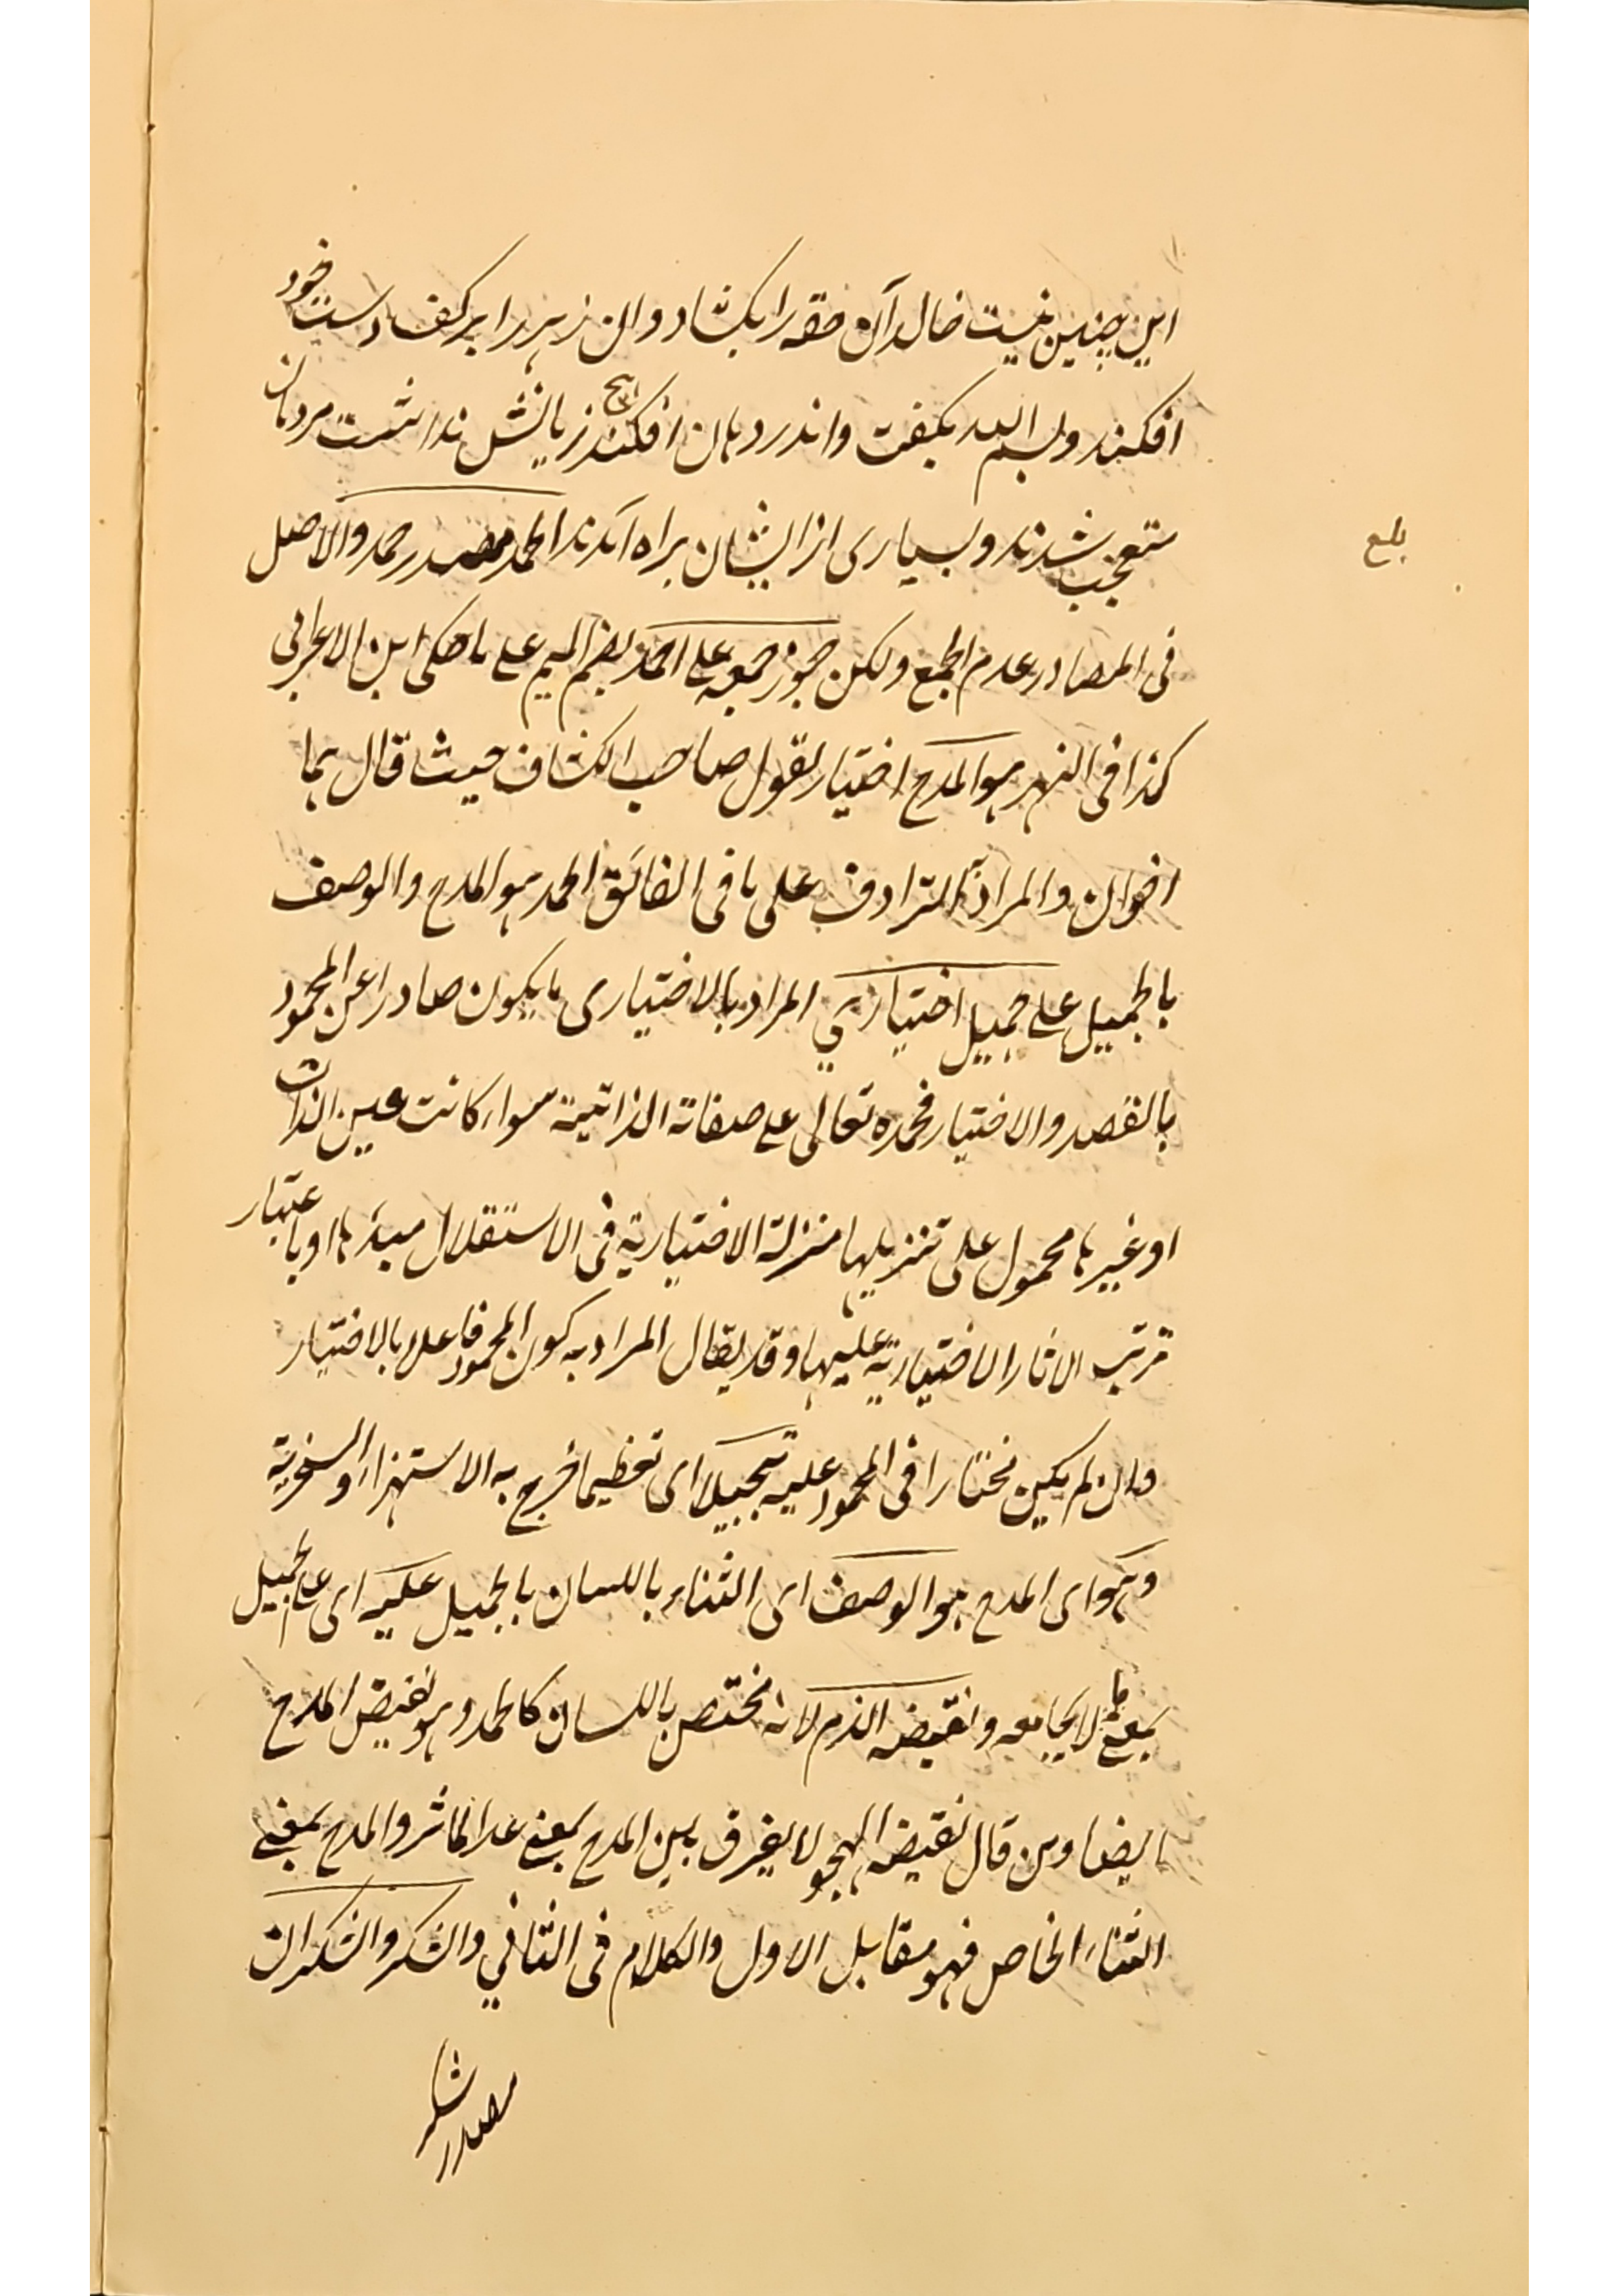 این چنین نیست خالد آن حقه را بکشاد و ان زهر را بر کف دست خود
افکند و بسم الله بگفت و اندر دهان افکند هیچ زیانش نداشت مردمان
متعجب شدند و بسیاری از ایشان براه آمدند الحمد مصدر حمد والاصل
بلع
فی المصادر عدم الجمع ولکن جوز جمعه علی احمد بضم المیم علی ما حکی ابن الاعرابی
کذا فی النهر هو المدح اختیار لقول صاحب الکشاف حیث قال هما
اخوان والمراد به الترادف علی ما فی الفائق الحمد هو المدح والوصف
بالجمیل علی جمیل اختیاری المراد بالاختیاری ما یکون صادرا عن المحمود
بالقصد والاختیار فحمده تعالی علی صفاته الذاتیة سواء کانت عین الذات
او غیرها محمول علی تنزیلها منزلة الاختیاریة فی الاستقلال مبدئها او باعتبار
ترتب الاثار الاختیاریة علیها وقد یقال المراد به کون المحمود فاعلا بالاختیار
وان لم یکن مختارا فی المحمود علیه تبجیلا ای تعظیما خرج به الاستهزاء والسخریة
وهو ای المدح هو الوصف ای الثناء باللسان بالجمیل علیه ای علی الجمیل
بمعنی ما لا یجامعه ونقیضه الذم لانه مختص باللسان کالحمد وهو نقیض المدح
ایضا ومن قال نقیضه الهجو لا یفرق بین المدح بمعنی عد الماثر والمدح بمعنی
الثناء الخاص فهو مقابل الاول والکلام فی الثانی والشکر والشکران
مصدر شکر